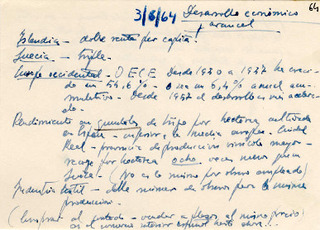 64
3/8/64 Desarrollo económico
arancel
Islandia - doble renta per capita!
Suecia - triple
Europa occidental - O E C E Desde 1950 a 1957 ha creci-
do un 54,6% - o sea un 6,4% anual acu-
mulativo - Desde 1957 el desarrollo es más acelera-
do.
Rendimiento en quintales de trigo por hectárea cultivada
en España - inferior a la media europea. Ciudad
Real - provincia de producción vinícola mayor -
recoge por hectárea ocho veces menos que
Suiza - (no es lo mismo por obrero empleado)
Industria textil - doble número de obreros para la misma
producción.
(Comprar al contado - vender a plazos al mismo precio
es el comercio interior español hasta ahora...